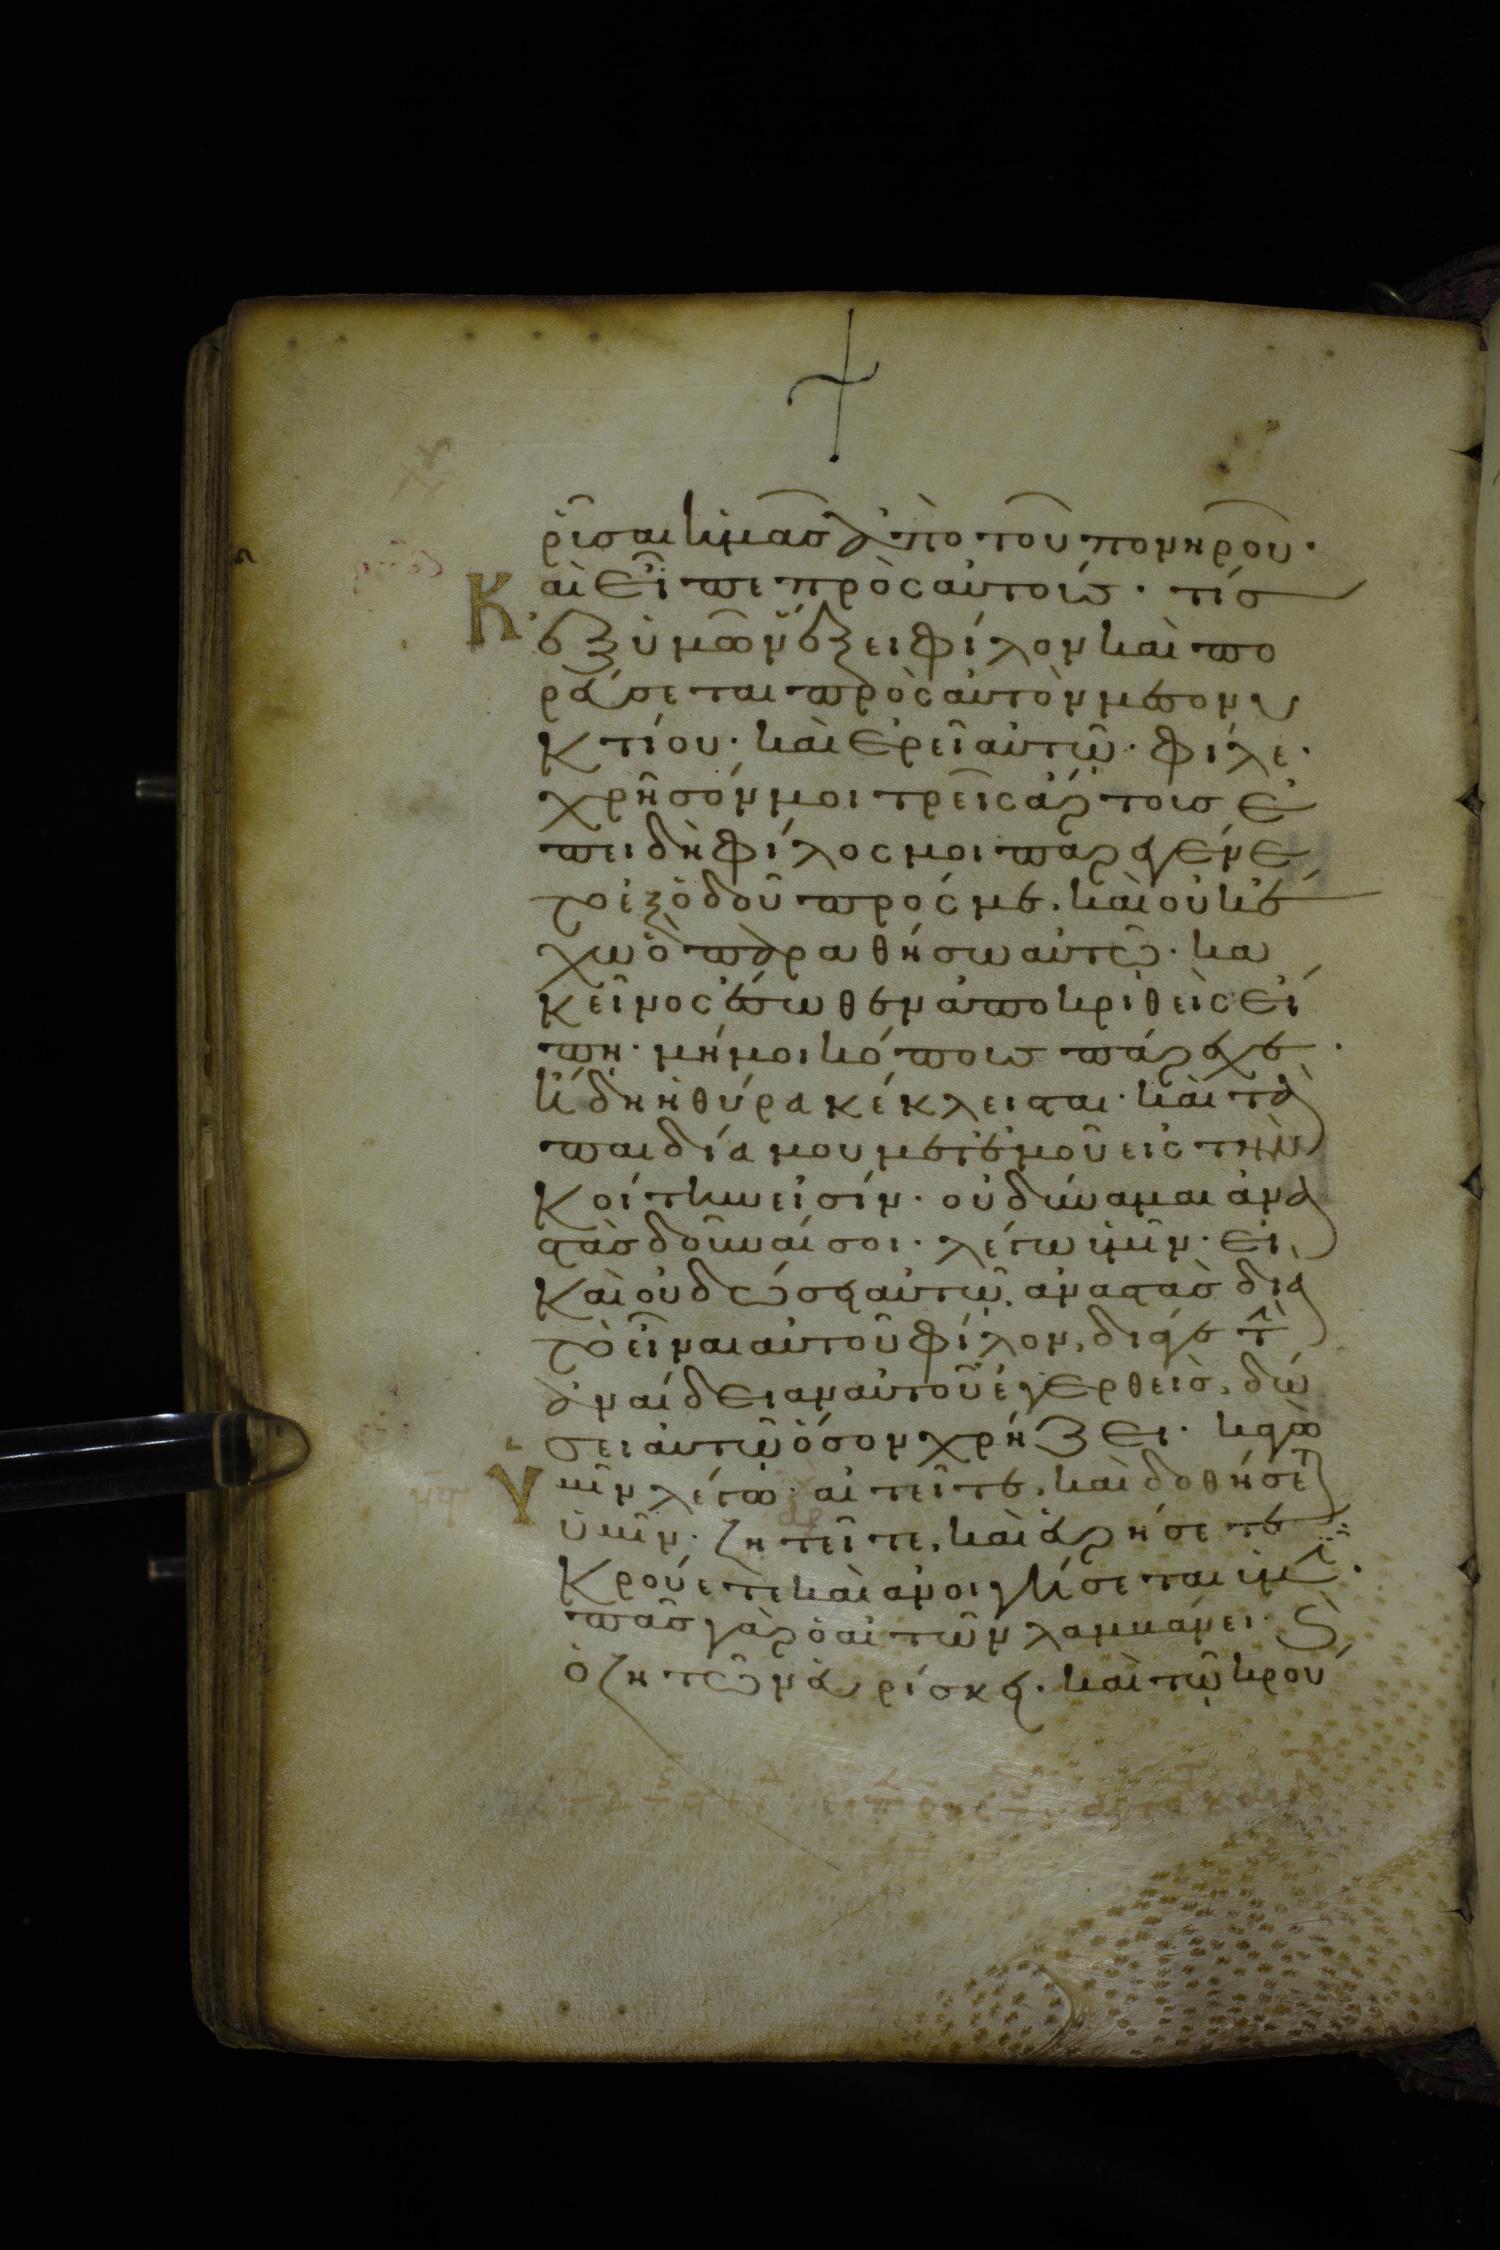 ρῦσαι ἡμᾶς ἀπὸ τοῦ πονηροῦ·
Καὶ εἶπε πρὸς αὐτούς· τίς
ἐξ ὑμῶν ἕξει φίλον καὶ πο
ρεύσεται πρὸς αὐτὸν μεσονυ
κτίου· καὶ ἐρεῖ αὐτῷ· φίλε·
χρῆσόν μοι τρεῖς ἄρτους ἐ
πειδὴ φίλος μοι παρεγένε
το ἐξ ὁδοῦ πρός με, καὶ οὐκ ἔ
χω ὃ παραθήσω αὐτῷ· κα
κεῖνος ἔσωθεν ἀποκριθεὶς εἴ
πῃ· μή μοι κόπους πάρεχε·
ἤδη ἡ θύρα κέκλεισται· καὶ τὰ
παιδία μου μετ' ἐμοῦ εἰς τὴν
κοίτην εἰσίν· οὐ δύναμαι ἀνα
στὰς δοῦναί σοι· λέγω ὑμῖν· εἰ
καὶ οὐ δώσει αὐτῷ ἀναστὰς διὰ
τὸ εἶναι αὐτοῦ φίλον, διά γε τὴν
ἀναίδειαν αὐτοῦ ἐγερθεὶς, δώ
σει αὐτῷ ὅσον χρῄζει· κἀγὼ
ὑμῖν λέγω· αἰτεῖτε, καὶ δοθήσεται
ὑμῖν· ζητεῖτε, καὶ εὑρήσετε
κρούετε καὶ ἀνοιγήσεται ὑμῖν·
πᾶς γὰρ ὁ αἰτῶν λαμβάνει· καὶ
ὁ ζητῶν εὑρίσκει· καὶ τῷ κρου